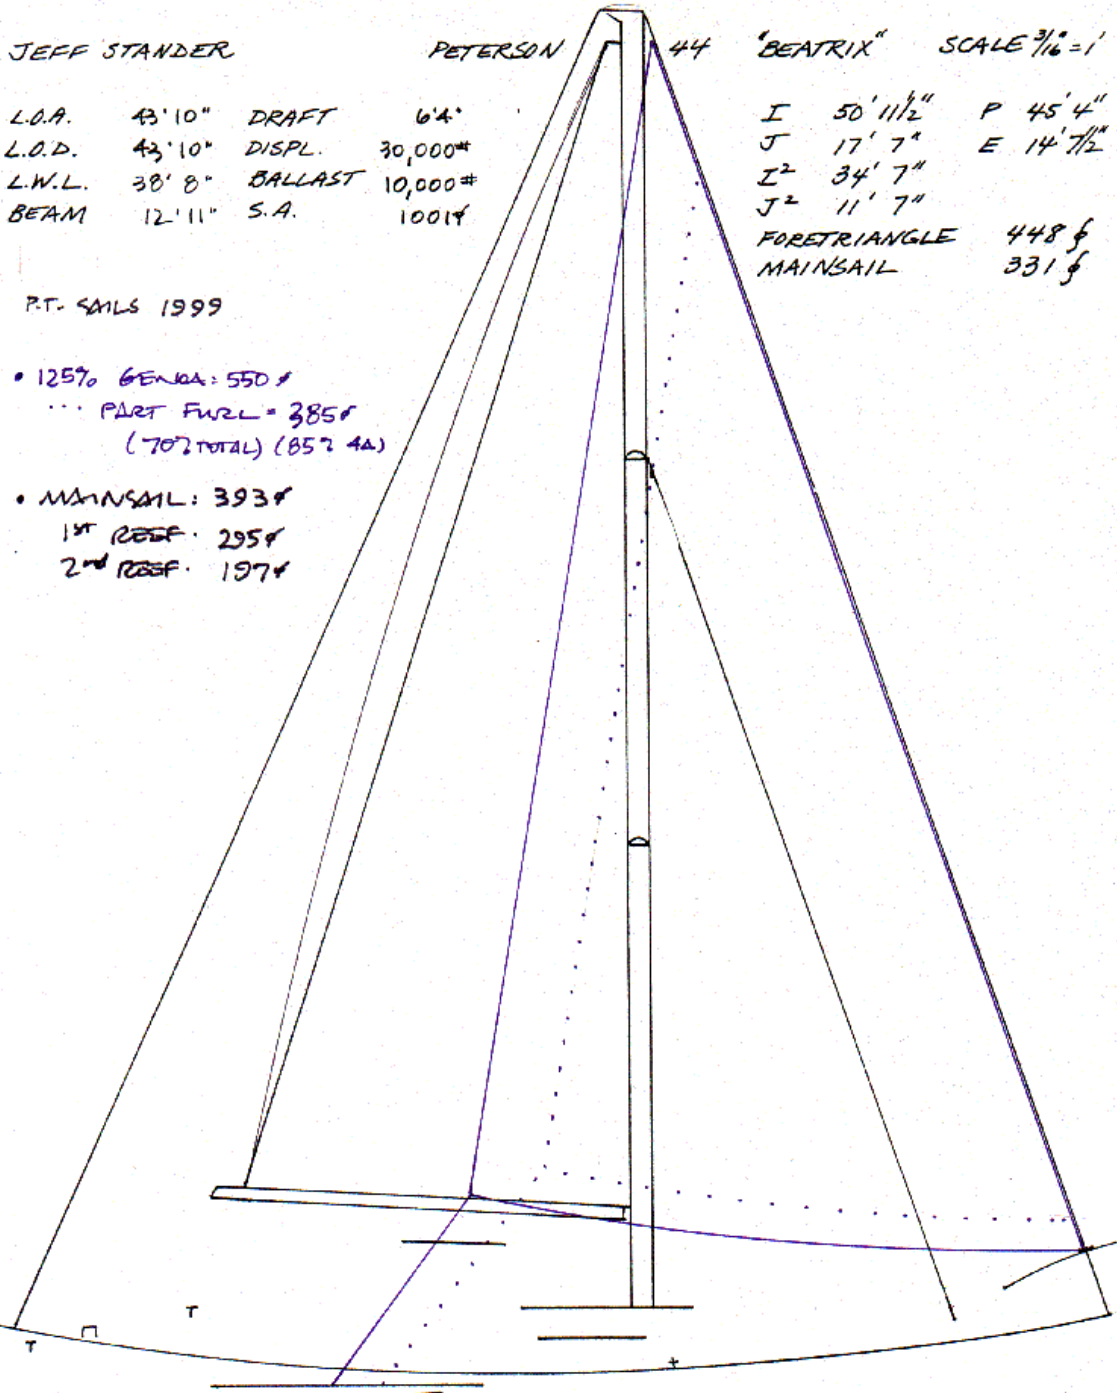 JEFF STANDER PETERSON 44 "BEATRIX" SCALE 3/16" = 1'
L.O.A. 43'10" DRAFT 6'4"
L.O.D. 43'10" DISPL. 30,000#
L.W.L. 38'8" BALLAST 10,000#
BEAM 12'11" S.A. 1001
I 50'11 1/2" P 45'4"
J 17'7" E 14'7 1/2"
I² 34'7"
J² 11'7"
FORETRIANGLE 448
MAINSAIL 331
P.T. SAILS 1999
• 125% GENOA: 550
... PART FURL = 385
(70% TOTAL) (85%
• MAINSAIL: 393
1ST REEF. 295
2nd REEF. 197